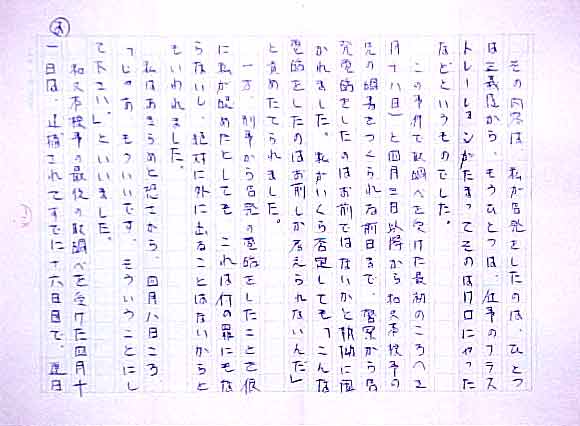 その内容は、私が告発をしたのは、ひとつ
は正義感から、もうひとつは、仕事のフラス
トレーションがたまってそのはけ口にやった
などというものでした。
この事件で取調べを受けた最初のころ(
月十八日)と四月三日以降から 本検事の
調書をつくられる前日まで、警察から告
発電話をしたのはお前ではないかと執拗に聞
かれました。私がいくら否定しても「こんな
電話をしたのはお前しか考えられないんだ」
と責めたてられました。
一方、刑事から告発の電話をしたことで仮
に私が認めたとしても、これは何の罪にもな
らないし、絶対に外に出ることはないからと
もいわれました。
私はあきらめと恐さから、四月八日ころ、
「じゃあ、もういいです。そういうことにし
て下さい。」といいました。
本検事の最後の取調べを受けた四月十
一日は、逮捕されてすでに十六日目で、連日